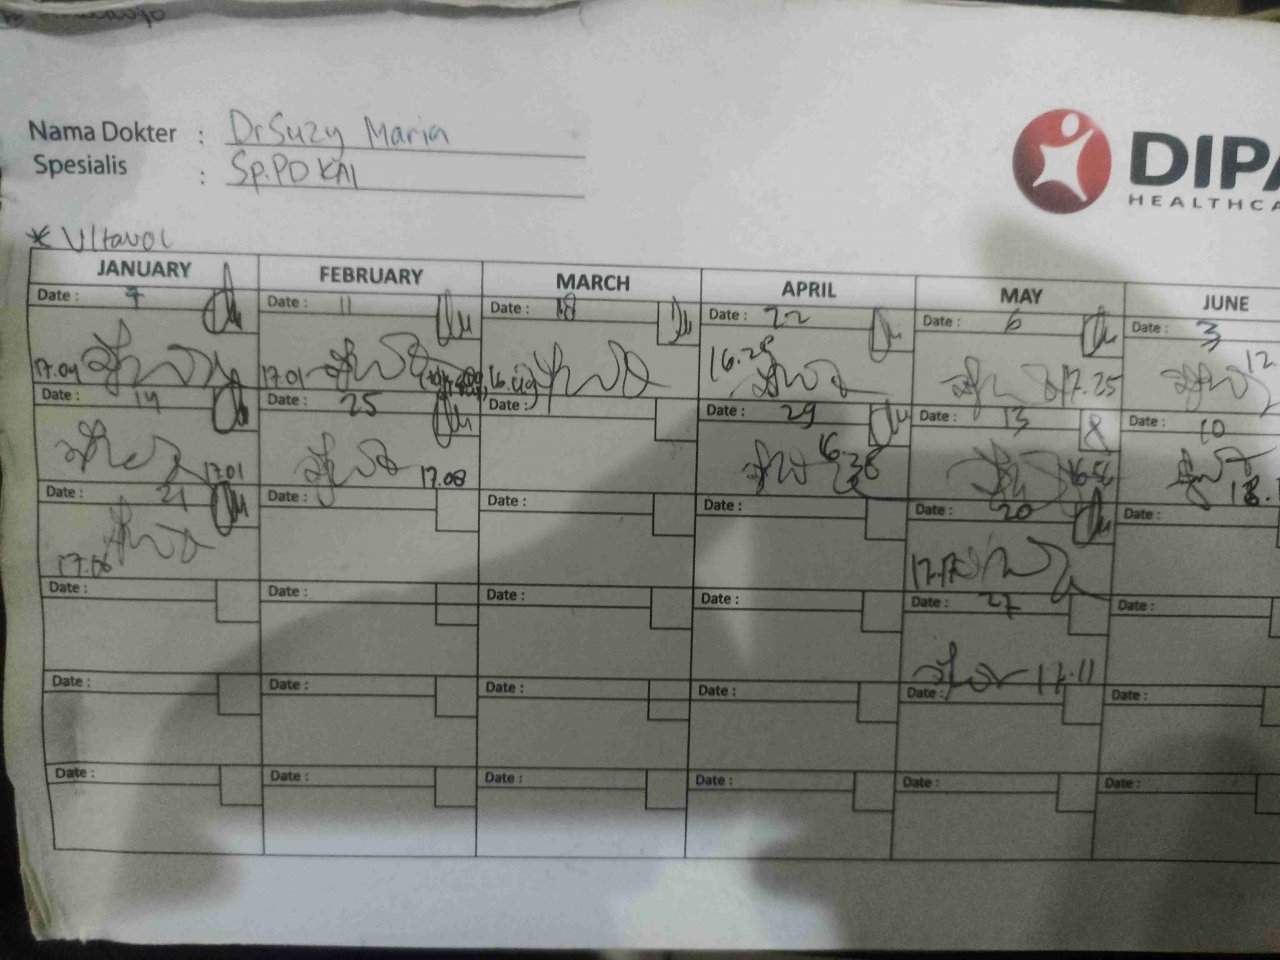 Nama Dokter : Dr Suzy Maria
Spesialis : Sp.PD KAI
DIPA
HEALTHCA
* Vltavol
JANUARY FEBRUARY MARCH APRIL MAY JUNE
Date : 7 Date : 11 Date : 18 Date : 22 Date : 6 Date : 3
17.04 17.01 16.49 16.28 17.25 12
Date : 14 Date : 25 Date : Date : 29 Date : 13 Date : 10
17.01 17.08 16.38 16.56 18.
Date : 21 Date : Date : Date : Date : 20 Date :
17.06 17.17
Date : Date : Date : Date : Date : 27 Date :
17.11
Date : Date : Date : Date : Date : Date :
Date : Date : Date : Date : Date : Date :